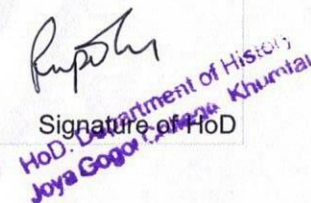 Signature of HoD
HoD. Department of History
Joya Gogoi College Khumtai